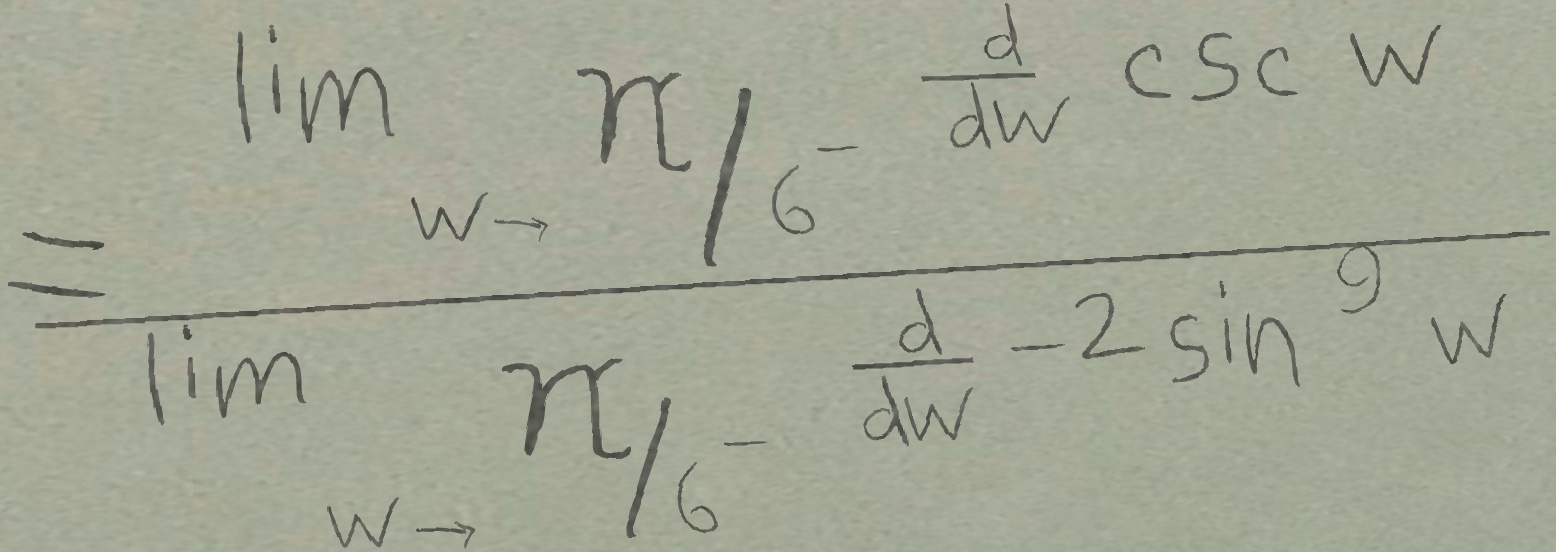 = \frac{\lim_{w \to \pi/6^-} \frac{d}{dw} \csc w}{\lim_{w \to \pi/6^-} \frac{d}{dw} -2 \sin^9 w}